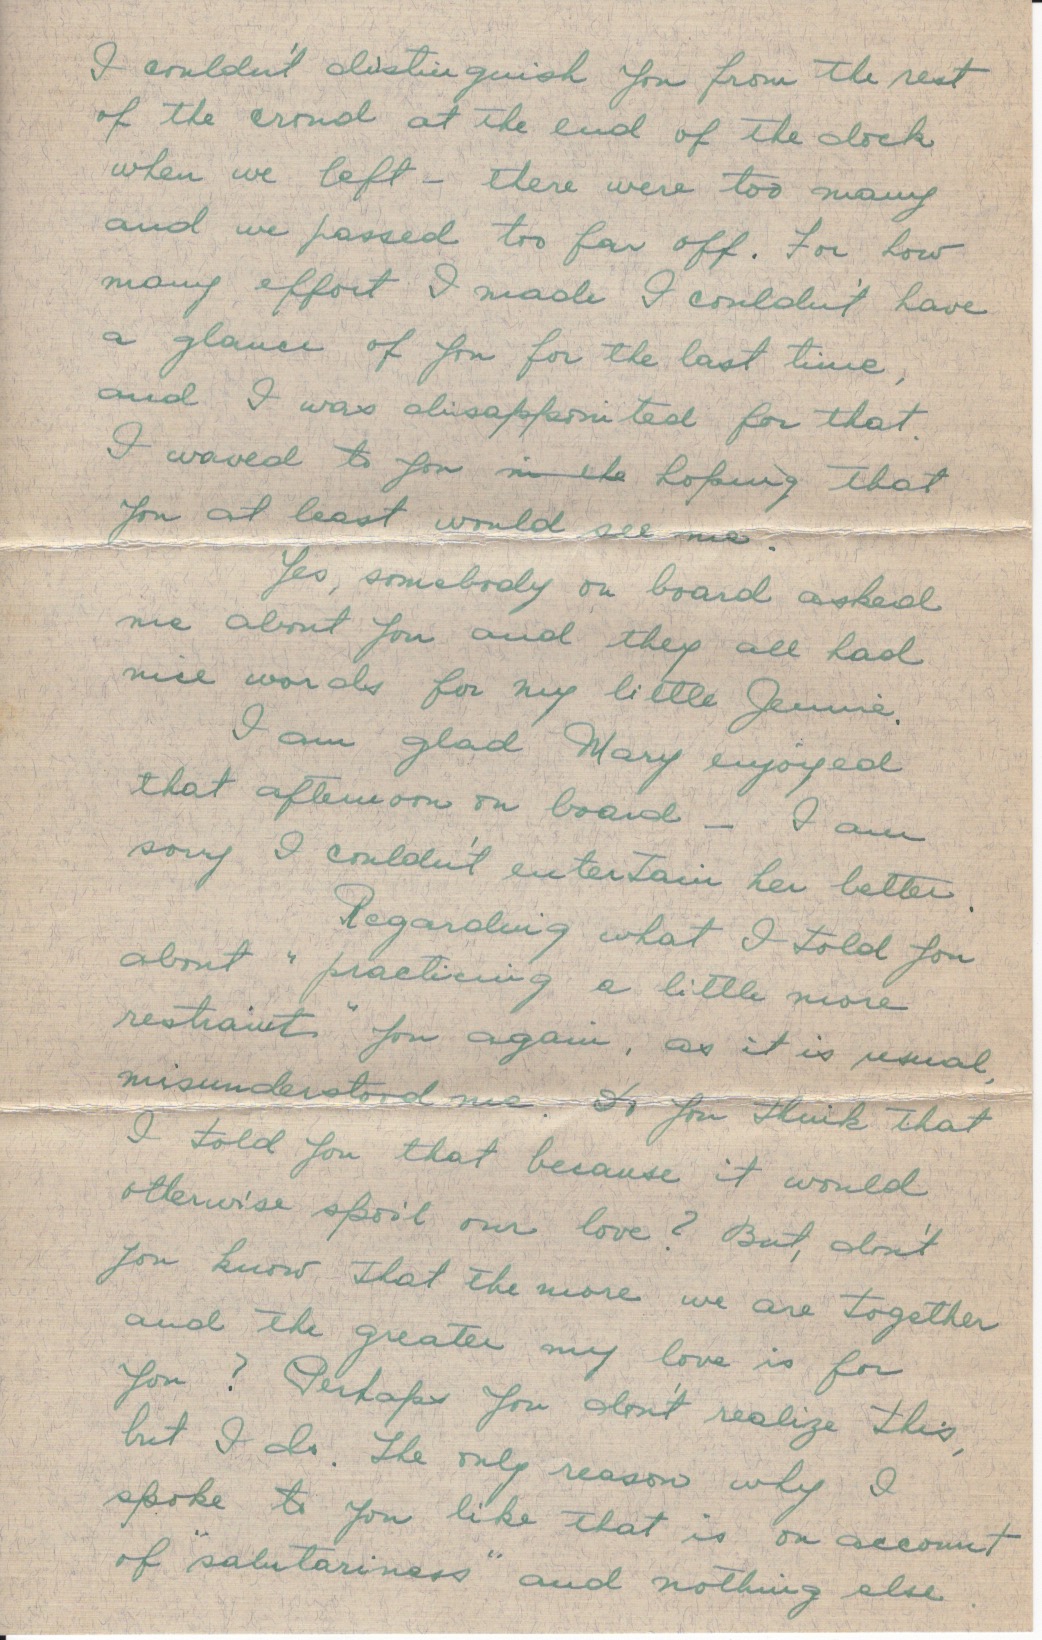 I couldn't distinguish you from the rest
of the crowd at the end of the dock
when we left – there were too many
and we passed too far off. For how
many effort I made I couldn't have
a glance of you for the last time,
and I was disappointed for that.
I waved to you in the hoping that
you at least would see me.
Yes, somebody on board asked
me about you and they all had
nice words for my little Jennie.
I am glad Mary enjoyed
that afternoon on board – I am
sorry I couldn't entertain her better.
Regarding what I told you
about "practicing a little more
restraint" you again, as it is usual,
misunderstood me. Do you think that
I told you that because it would
otherwise spoil our love? But, don't
you know that the more we are together
and the greater my love is for
you? Perhaps you don't realize this,
but I do. The only reason why I
spoke to you like that is on account
of "salutariness" and nothing else.